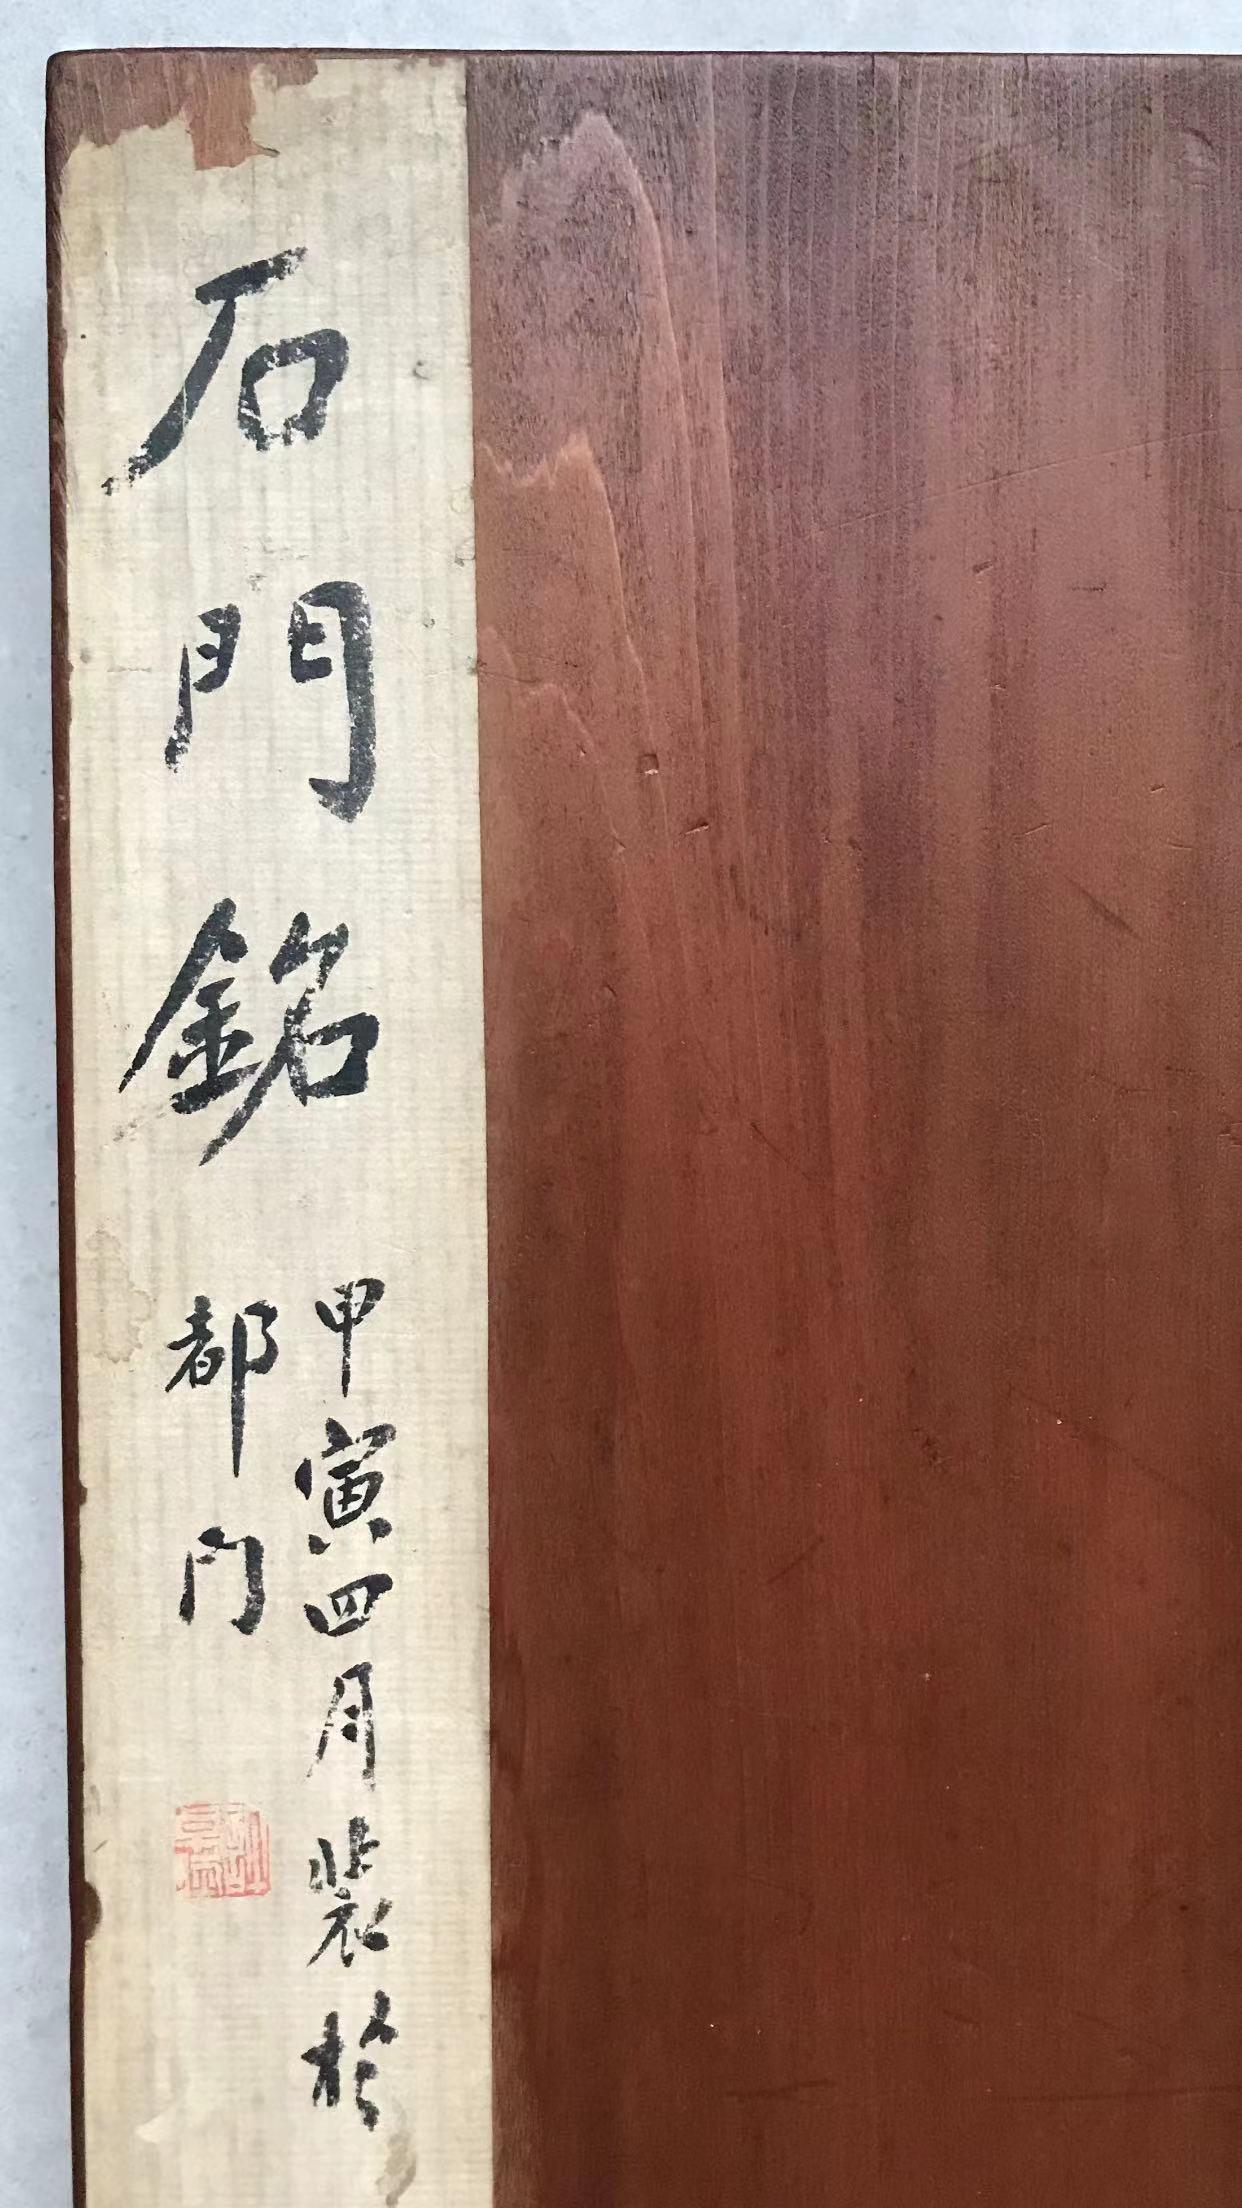 石門銘
甲寅四月裝於
都门